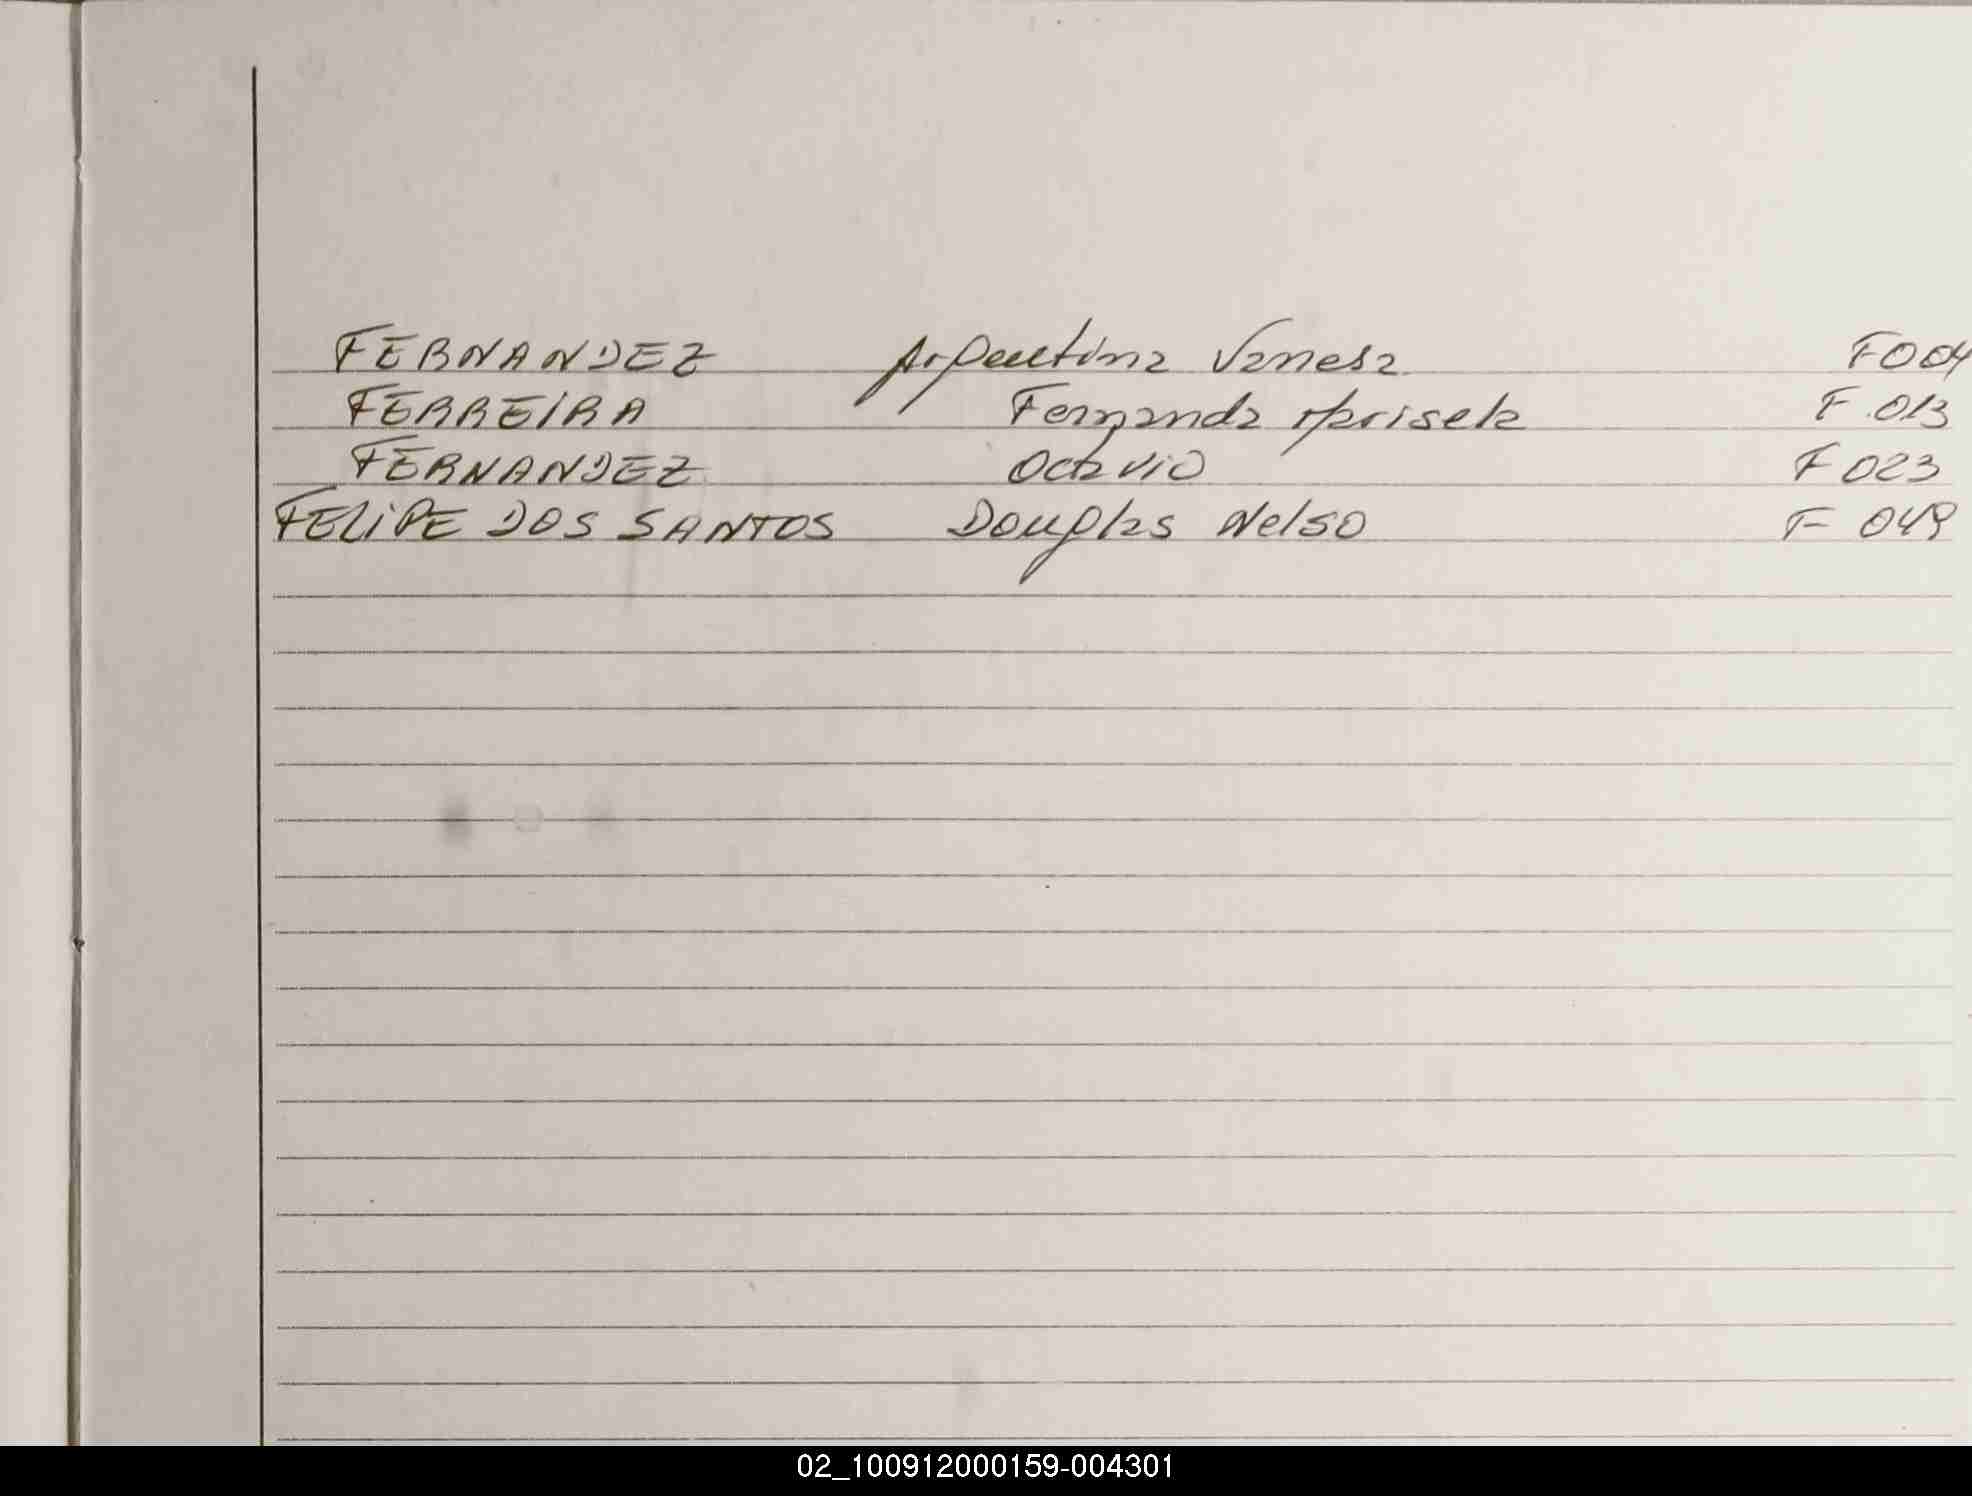 FERNANDEZ Argentina Vanesa F004
FERREIRA Fernanda Marisela F.013
FERNANDEZ Octavio F 023
FELIPE DOS SANTOS Douglas Nelso F 049
02_100912000159-004301